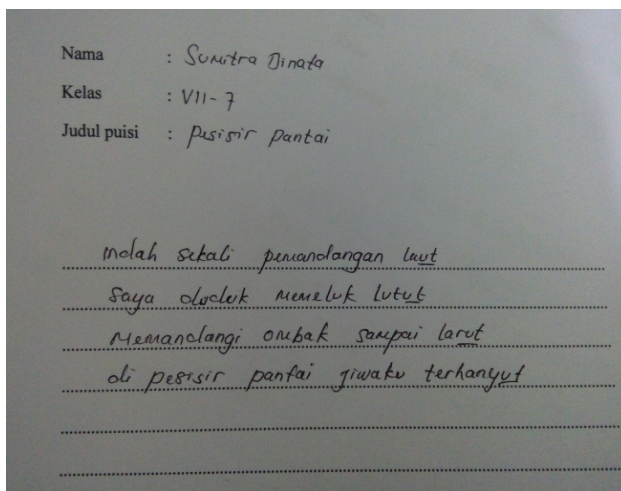 Nama : Sumitra Dinata
Kelas : VII-7
Judul puisi : Pesisir Pantai
Indah sekali pemandangan laut
Saya duduk memeluk lutut
Memandangi ombak sampai larut
di pesisir pantai jiwaku terhanyut